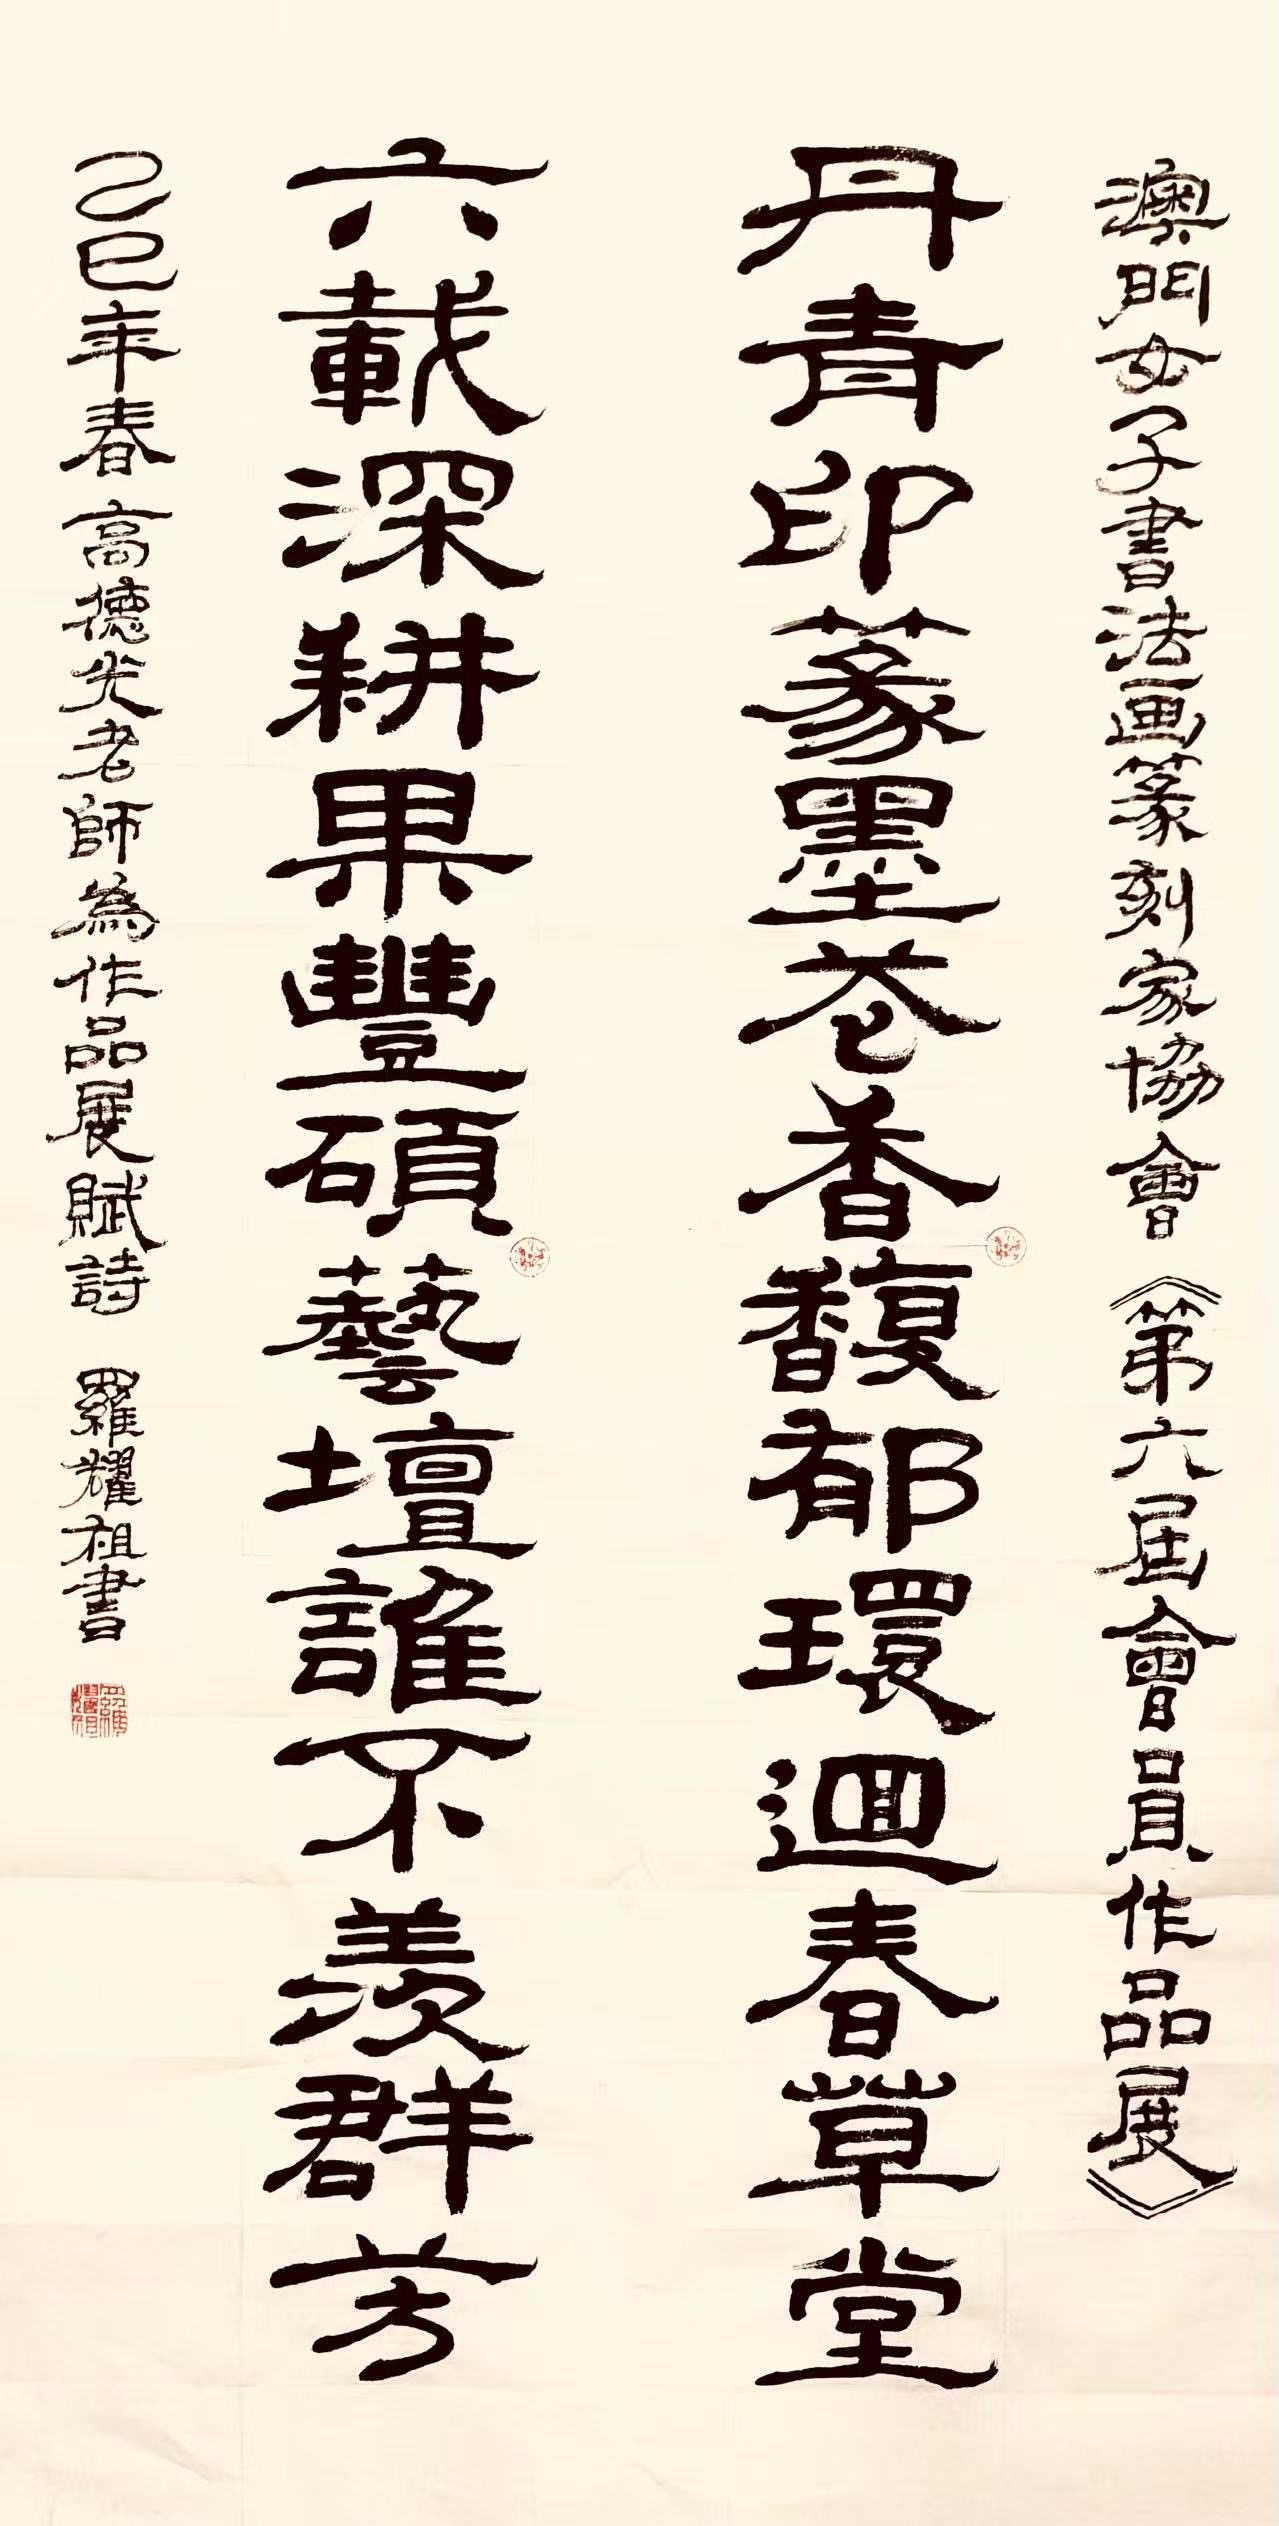 澳門女子書法画篆刻家協會《第六屆會員作品展》
丹青印篆墨花香馥郁環迴春草堂
六載深耕果豐碩藝壇誰不羨群芳
乙巳年春高德光老師為作品展賦詩 羅耀祖書